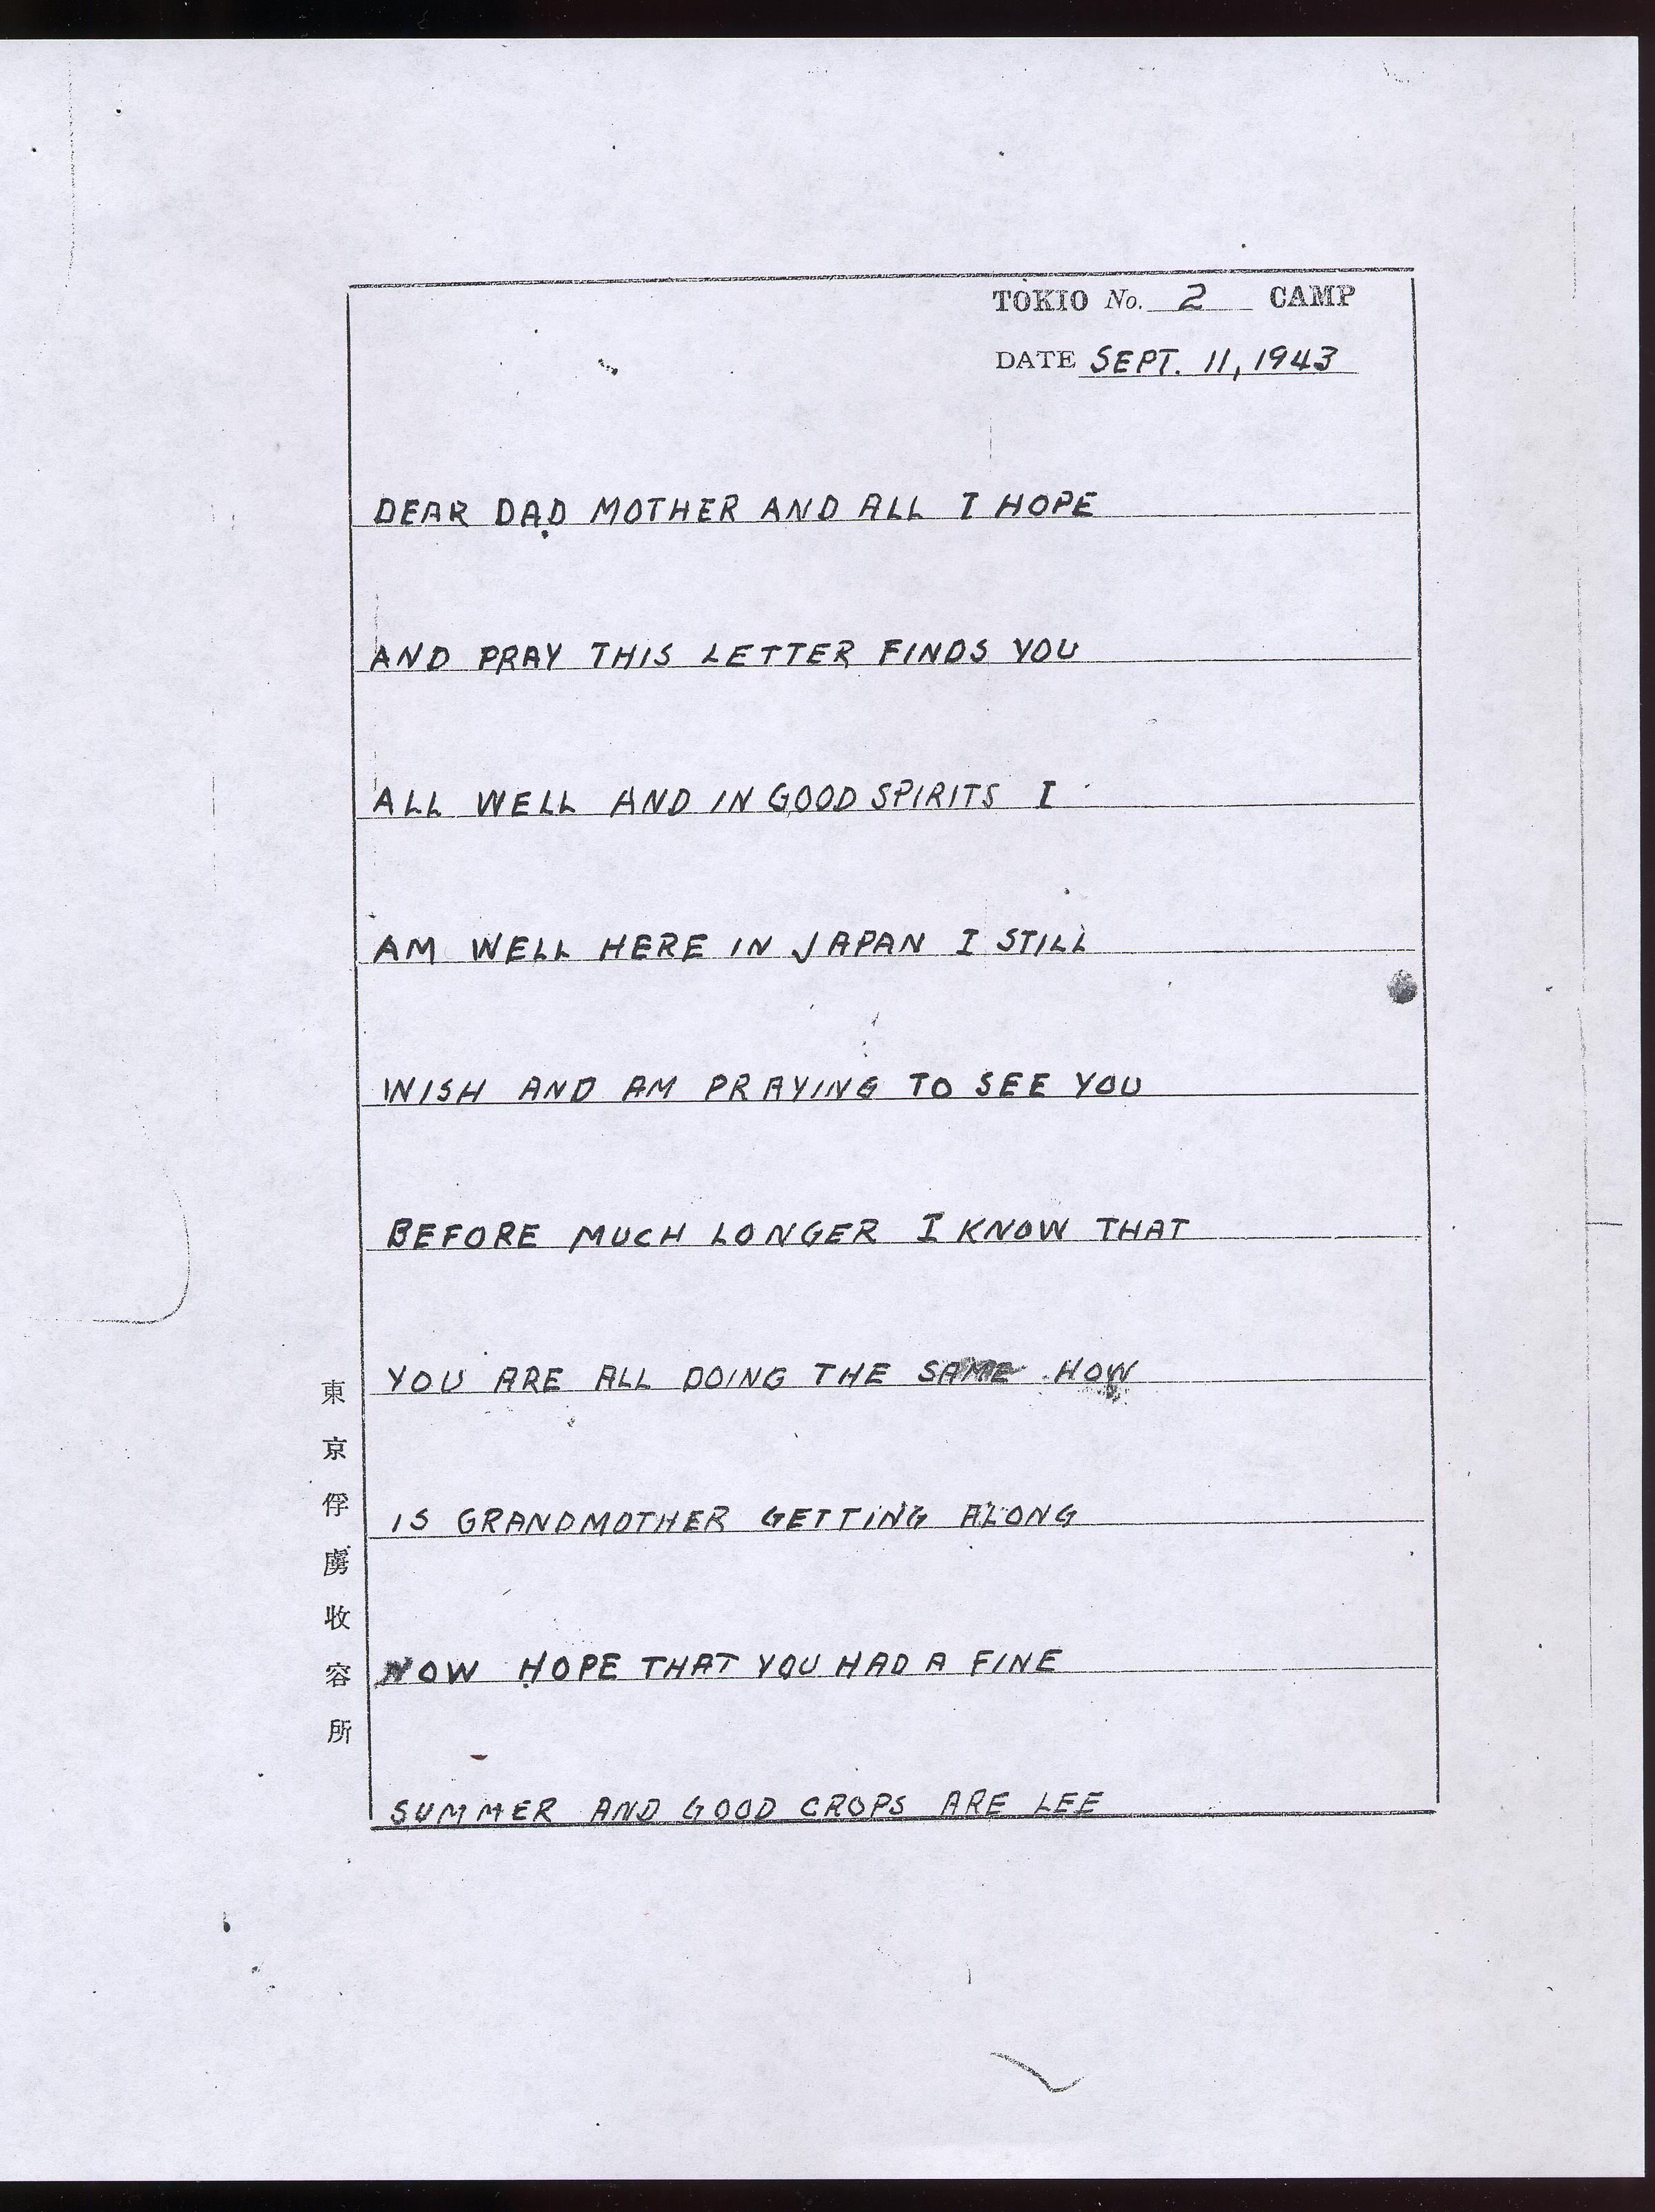 TOKIO No. 2 CAMP
DATE SEPT. 11, 1943
DEAR DAD MOTHER AND ALL I HOPE
AND PRAY THIS LETTER FINDS YOU
ALL WELL AND IN GOOD SPIRITS I
AM WELL HERE IN JAPAN I STILL
WISH AND AM PRAYING TO SEE YOU
BEFORE MUCH LONGER I KNOW THAT
YOU ARE ALL DOING THE SAME HOW
IS GRANDMOTHER GETTING ALONG
NOW HOPE THAT YOU HAD A FINE
SUMMER AND GOOD CROPS ARE LEE
東京俘虜收容所